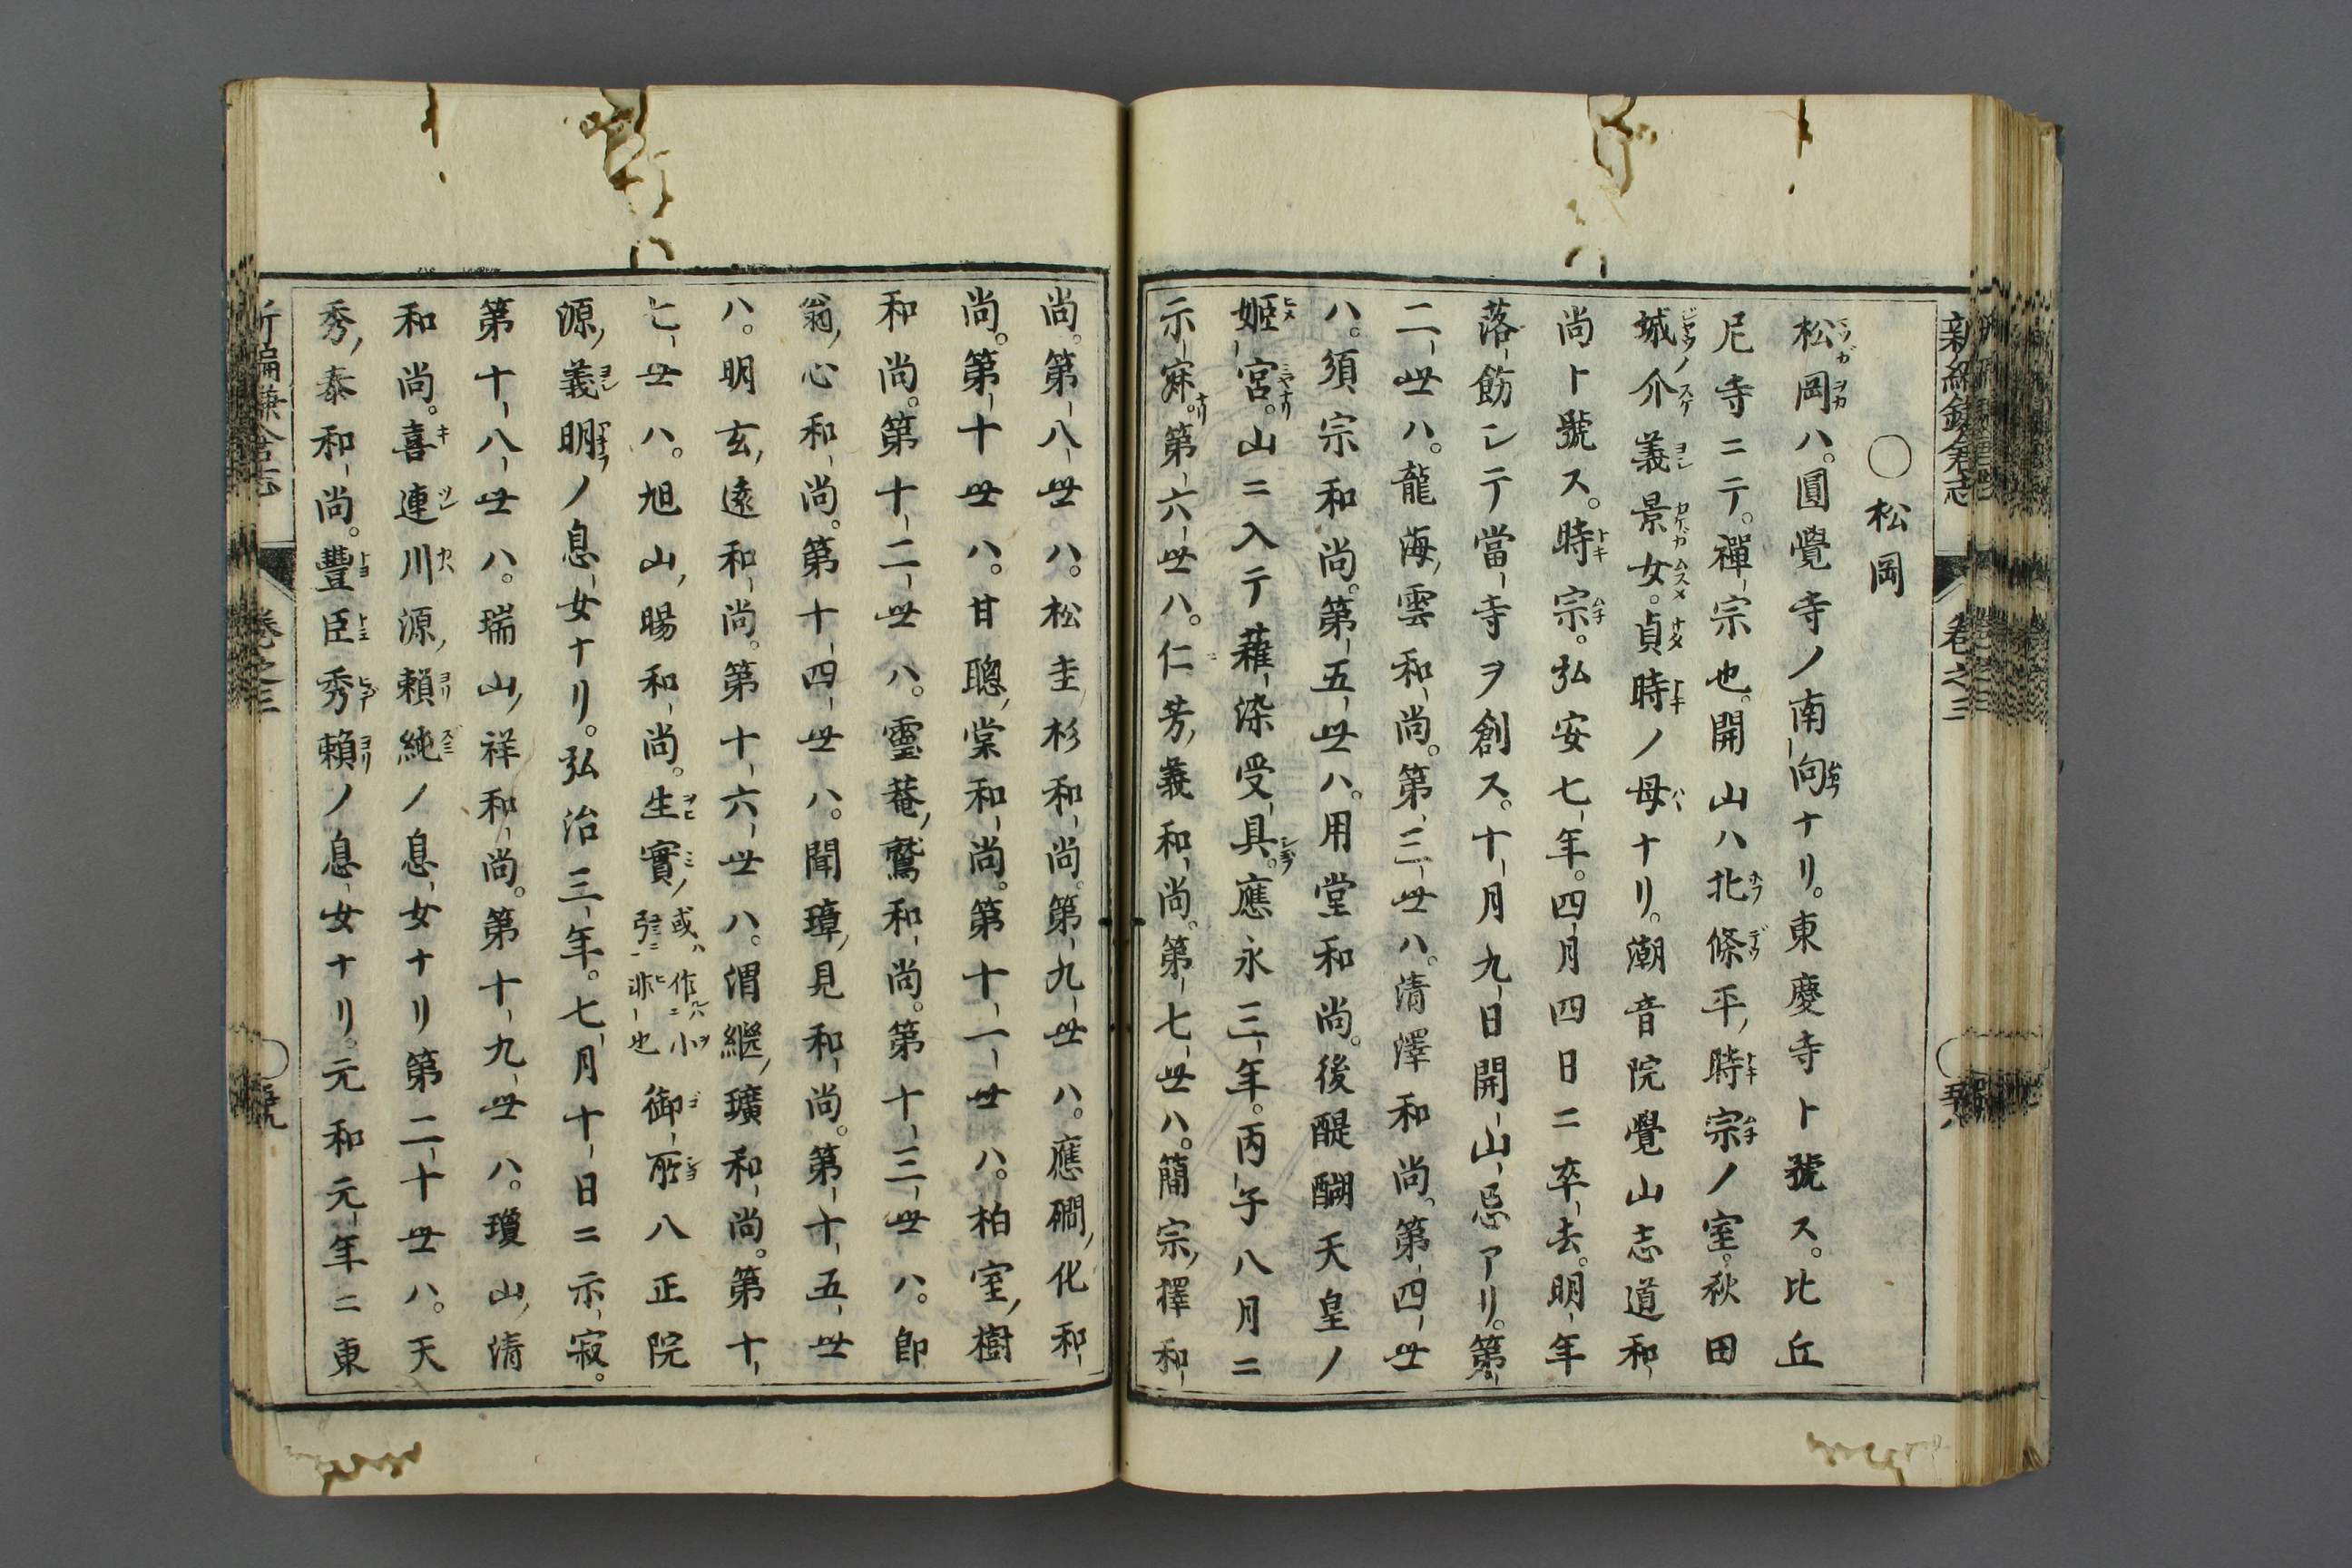 新編鎌倉志
卷之三
○松岡
松岡ハ。圓覺寺ノ南向ナリ。東慶寺ト號ス。比丘
尼寺ニテ。禪宗也。開山ハ北條平時宗ノ室。秋田
城介義景女。貞時ノ母ナリ。潮音院覺山志道和
尚ト號ス。時宗。弘安七年。四月四日ニ卒去。明年
落飭シテ當寺ヲ創ス。十月九日開山忌アリ。第
二世ハ。龍海雲和尚。第三世ハ。清澤和尚。第四世
ハ。須宗和尚。第五世ハ。用堂和尚。後醍醐天皇ノ
姫宮。山ニ入テ薙染受具。應永三年。丙子八月ニ
示寂。第六世ハ。仁芳義和尚。第七世ハ。簡宗擇和
尚。第八世ハ。松圭杉和尚。第九世ハ。應礀化和
尚。第十世ハ。甘聰棠和尚。第十一世ハ。柏室樹
和尚。第十二世ハ。靈菴鷲和尚。第十三世ハ。卽
翁心和尚。第十四世ハ。聞璋見和尚。第十五世
ハ。明玄遠和尚。第十六世ハ。渭繼璜和尚。第十
七世ハ。旭山暘和尚。生實或ハ作ルハ小弓ニ非也御所八正院
源義明ノ息女ナリ。弘治三年。七月十日ニ示寂。
第十八世ハ。瑞山祥和尚。第十九世ハ。瓊山清
和尚。喜連川源賴純ノ息女ナリ第二十世ハ。天
秀泰和尚。豐臣秀賴ノ息女ナリ。元和元年ニ東
新編鎌倉志
卷之三